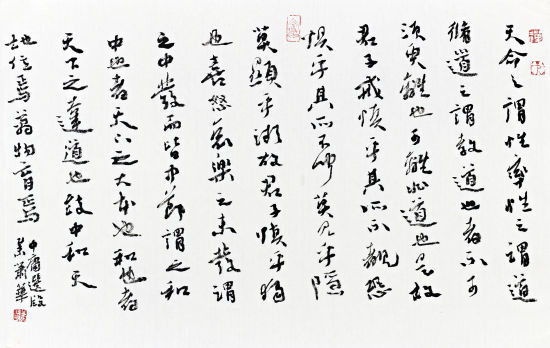 天命之謂性率性之謂道
脩道之謂教道也者不可
須臾離也可離非道也是故
君子戒慎乎其所不覩恐
懼乎其所不聞莫見乎隱
莫顯乎微故君子慎乎獨
也喜怒哀樂之未發謂
之中發而皆中節謂之和
中也者天下之大本也和也者
天下之達道也致中和天
地位焉萬物育焉
中庸選段
華